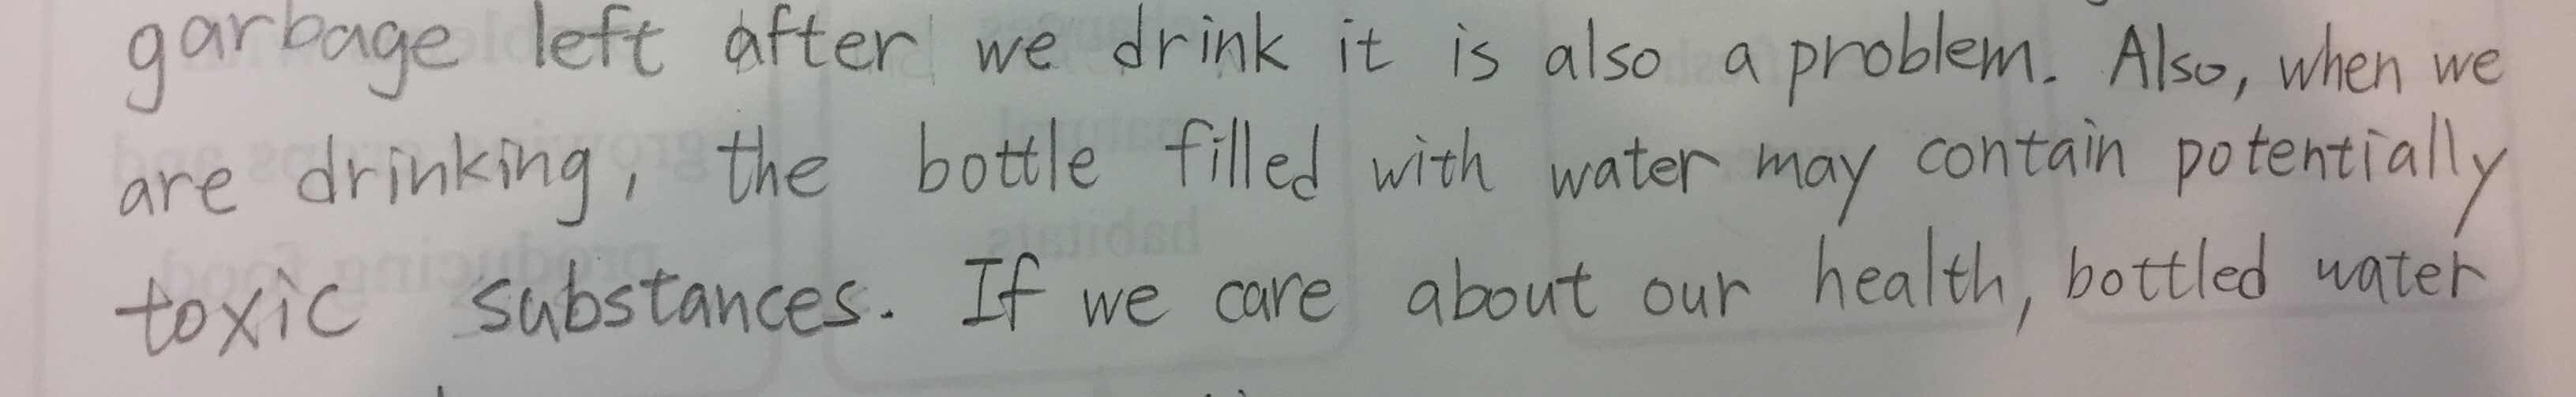 garbage left after we drink it is also a problem. Also, when we
are drinking, the bottle filled with water may contain potentially
toxic substances. If we care about our health, bottled water